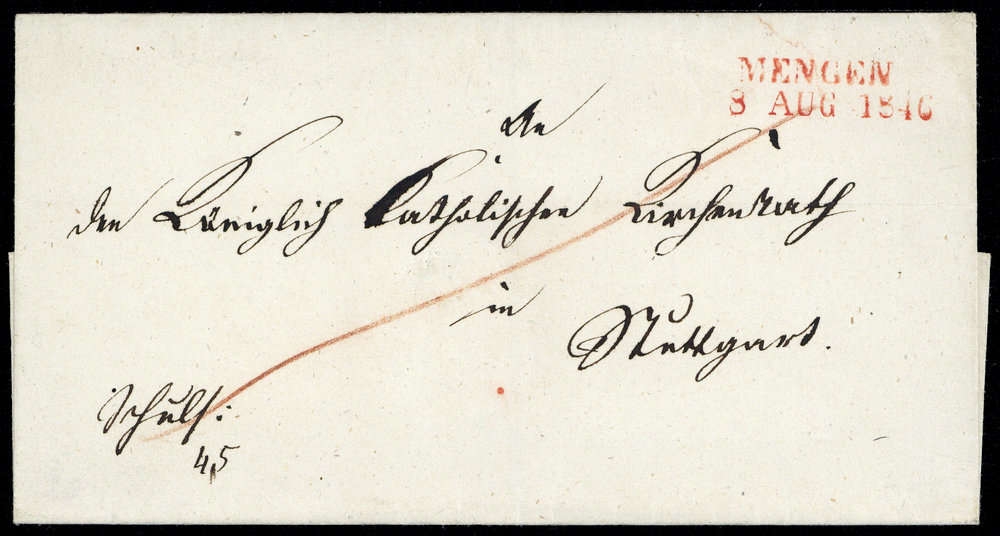 MENGEN
8 AUG 1846
An
den Königlich Katholischen Kirchenrath
in
Stuttgart.
Schuls:
45